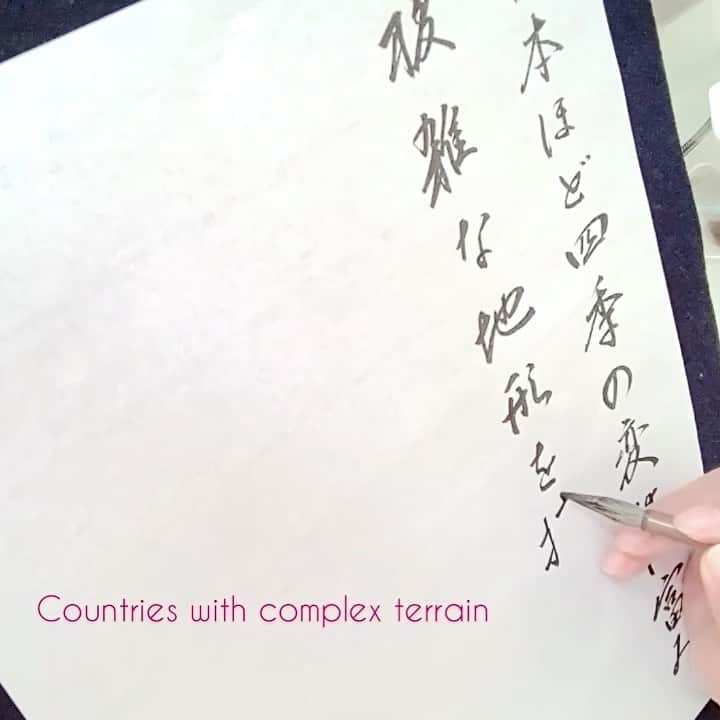 本ほど四季の変 富
複雑な地形を
Countries with complex terrain